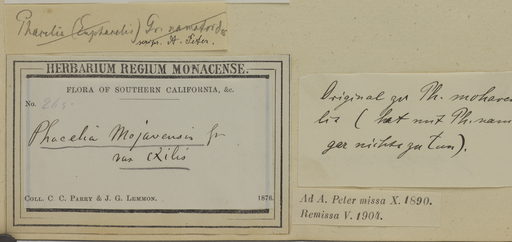 Phacelia (Euphacelia)
scrips. A. Peter.
HERBARIUM REGIUM MONACENSE.
FLORA OF SOUTHERN CALIFORNIA, &c.
No. 263.
Phacelia Mojavensis Gr
var exilis
COLL. C. C. PARRY & J. G. LEMMON. 1876.
Original zu Ph. mohaven
sis (hat mit Ph. nam
gar nichts zu tun).
Ad A. Peter missa X. 1890.
Remissa V. 1904.